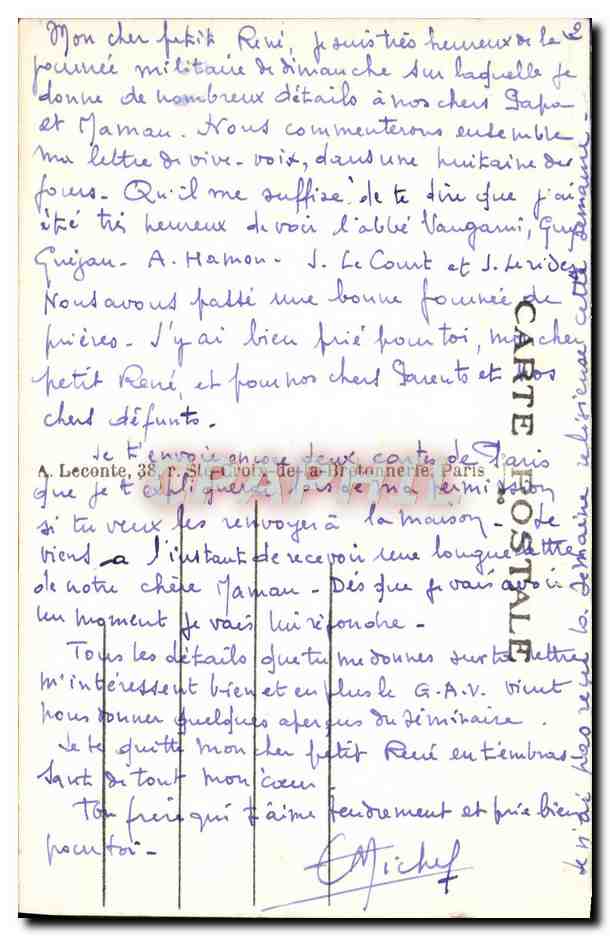 2
Mon cher petit René, je suis très heureux de la
journée militaire de dimanche sur laquelle je
donne de nombreux détails à nos chers Papa
et Maman. Nous commenterons ensemble
ma lettre de vive-voix, dans une huitaine de
jours. Qu'il me suffise de te dire que j'ai
été très heureux de voir l'abbé Guy
Gréjan - A. Hamon - J. Le Court et J.
Nous avons passé une bonne journée de
prières. J'y ai bien prié pour toi, mon cher
petit René, et pour nos chers Parents et nos
chers défunts.
Je t'envoie encore deux cartes de Paris
A. Leconte, 38, r. Ste-Croix-de-la-Bretonnerie, Paris
que je t'expliquerai lors de ma permission
si tu veux les renvoyer à la maison. Je
viens a l'instant de recevoir une longue lettre
de notre chère Maman. Dès que je vais avoir
un moment je vais lui répondre.
Tous les détails que tu me donnes sur ta lettre
m'intéressent bien et en plus le G.A.V. vient
nous donner quelques aperçus du séminaire.
Je te quitte mon cher petit René en t'embras-
sant de tout mon cœur.
Ton frère qui t'aime tendrement et prie bien
pour toi.
Michel
CARTE POSTALE
Je n'ai pas reçu la Semaine religieuse cette semaine.